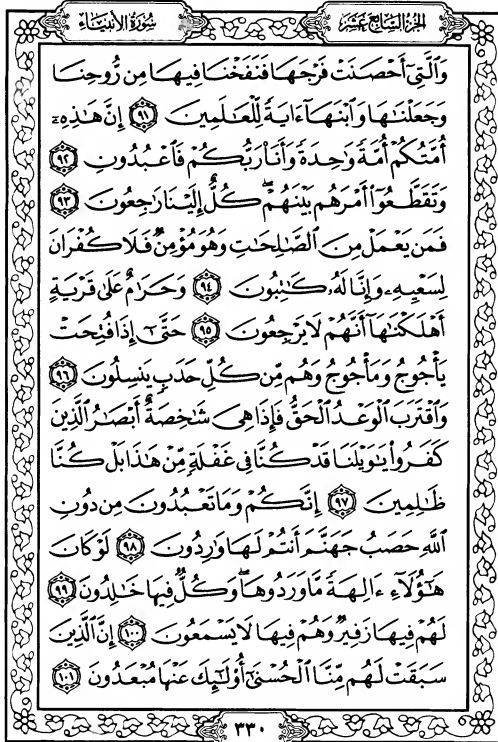 الجزء السابع عشر
سورة الأنبياء
وَٱلَّتِىٓ أَحۡصَنَتۡ فَرۡجَهَا فَنَفَخۡنَا فِيهَا مِن رُّوحِنَا
وَجَعَلۡنَٰهَا وَٱبۡنَهَآ ءَايَةٗ لِّلۡعَٰلَمِينَ ٩١ إِنَّ هَٰذِهِۦٓ
أُمَّتُكُمۡ أُمَّةٗ وَٰحِدَةٗ وَأَنَا۠ رَبُّكُمۡ فَٱعۡبُدُونِ ٩٢
وَتَقَطَّعُوٓاْ أَمۡرَهُم بَيۡنَهُمۡۖ كُلٌّ إِلَيۡنَا رَٰجِعُونَ ٩٣
فَمَن يَعۡمَلۡ مِنَ ٱلصَّٰلِحَٰتِ وَهُوَ مُؤۡمِنٞ فَلَا كُفۡرَانَ
لِسَعۡيِهِۦ وَإِنَّا لَهُۥ كَٰتِبُونَ ٩٤ وَحَرَٰمٌ عَلَىٰ قَرۡيَةٍ
أَهۡلَكۡنَٰهَآ أَنَّهُمۡ لَا يَرۡجِعُونَ ٩٥ حَتَّىٰٓ إِذَا فُتِحَتۡ
يَأۡجُوجُ وَمَأۡجُوجُ وَهُم مِّن كُلِّ حَدَبٖ يَنسِلُونَ ٩٦
وَٱقۡتَرَبَ ٱلۡوَعۡدُ ٱلۡحَقُّ فَإِذَا هِىَ شَٰخِصَةٌ أَبۡصَٰرُ ٱلَّذِينَ
كَفَرُواْ يَٰوَيۡلَنَا قَدۡ كُنَّا فِى غَفۡلَةٖ مِّنۡ هَٰذَا بَلۡ كُنَّا
ظَٰلِمِينَ ٩٧ إِنَّكُمۡ وَمَا تَعۡبُدُونَ مِن دُونِ
ٱللَّهِ حَصَبُ جَهَنَّمَ أَنتُمۡ لَهَا وَٰرِدُونَ ٩٨ لَوۡ كَانَ
هَٰٓؤُلَآءِ ءَالِهَةٗ مَّا وَرَدُوهَاۖ وَكُلّٞ فِيهَا خَٰلِدُونَ ٩٩
لَهُمۡ فِيهَا زَفِيرٞ وَهُمۡ فِيهَا لَا يَسۡمَعُونَ ١٠٠ إِنَّ ٱلَّذِينَ
سَبَقَتۡ لَهُم مِّنَّا ٱلۡحُسۡنَىٰٓ أُوْلَٰٓئِكَ عَنۡهَا مُبۡعَدُونَ ١٠١
٣٣٠